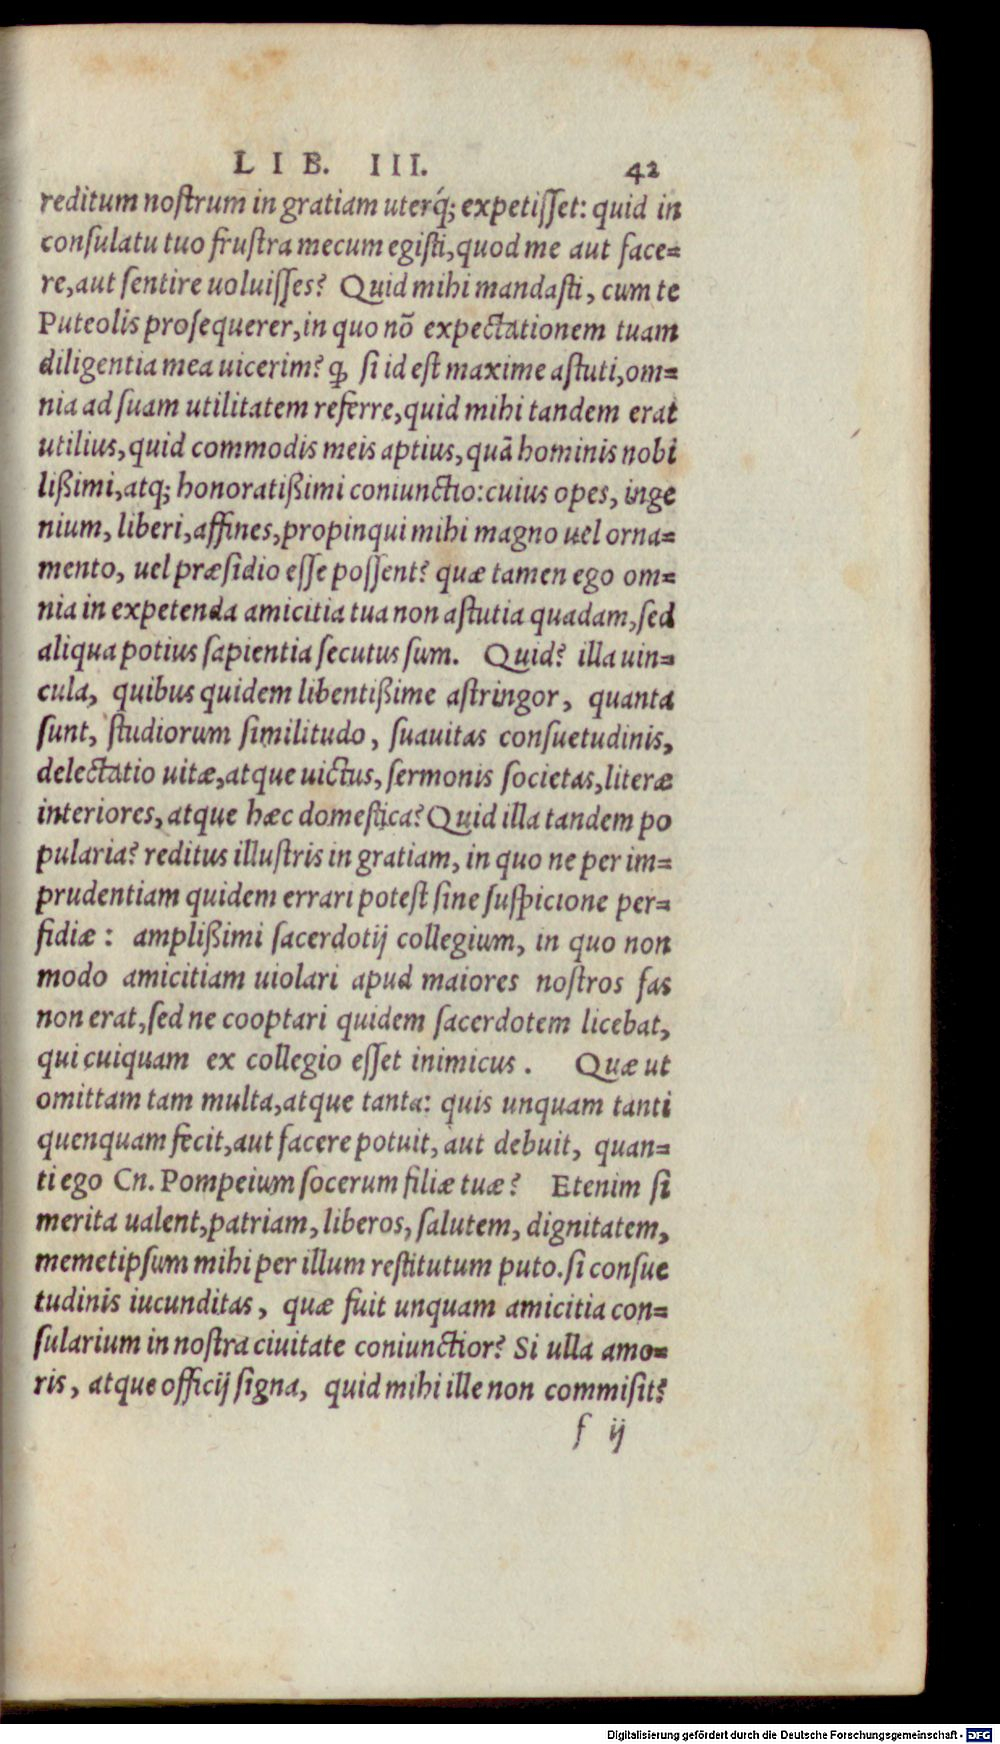 LIB. III. 42
reditum noſtrum in gratiam uterq́; expetiſſet: quid in
conſulatu tuo fruſtra mecum egiſti, quod me aut face=
re, aut ſentire uoluiſſes? Quid mihi mandaſti, cum te
Puteolis proſequerer, in quo nō expectationem tuam
diligentia mea uicerim? ꝙ ſi id eſt maxime aſtuti, om=
nia ad ſuam utilitatem referre, quid mihi tandem erat
utilius, quid commodis meis aptius, quã hominis nobi
lißimi, atq; honoratißimi coniunctio: cuius opes, inge
nium, liberi, affines, propinqui mihi magno uel orna=
mento, uel præſidio eſſe poſſent? quæ tamen ego om=
nia in expetenda amicitia tua non aſtutia quadam, ſed
aliqua potius ſapientia ſecutus ſum. Quid? illa uin=
cula, quibus quidem libentißime aſtringor, quanta
ſunt, ſtudiorum ſimilitudo, ſuauitas conſuetudinis,
delectatio uitæ, atque uictus, ſermonis ſocietas, literæ
interiores, atque hæc domeſtica? Quid illa tandem po
pularia? reditus illuſtris in gratiam, in quo ne per im=
prudentiam quidem errari poteſt ſine ſuſpicione per=
fidiæ: amplißimi ſacerdotij collegium, in quo non
modo amicitiam uiolari apud maiores noſtros fas
non erat, ſed ne cooptari quidem ſacerdotem licebat,
qui cuiquam ex collegio eſſet inimicus. Quæ ut
omittam tam multa, atque tanta: quis unquam tanti
quenquam fecit, aut facere potuit, aut debuit, quan=
ti ego Cn. Pompeium ſocerum filiæ tuæ? Etenim ſi
merita ualent, patriam, liberos, ſalutem, dignitatem,
memetipſum mihi per illum reſtitutum puto. ſi conſue
tudinis iucunditas, quæ fuit unquam amicitia con=
ſularium in noſtra ciuitate coniunctior? Si ulla amo=
ris, atque officij ſigna, quid mihi ille non commiſit?
f ij
Digitalisierung gefördert durch die Deutsche Forschungsgemeinschaft - DFG